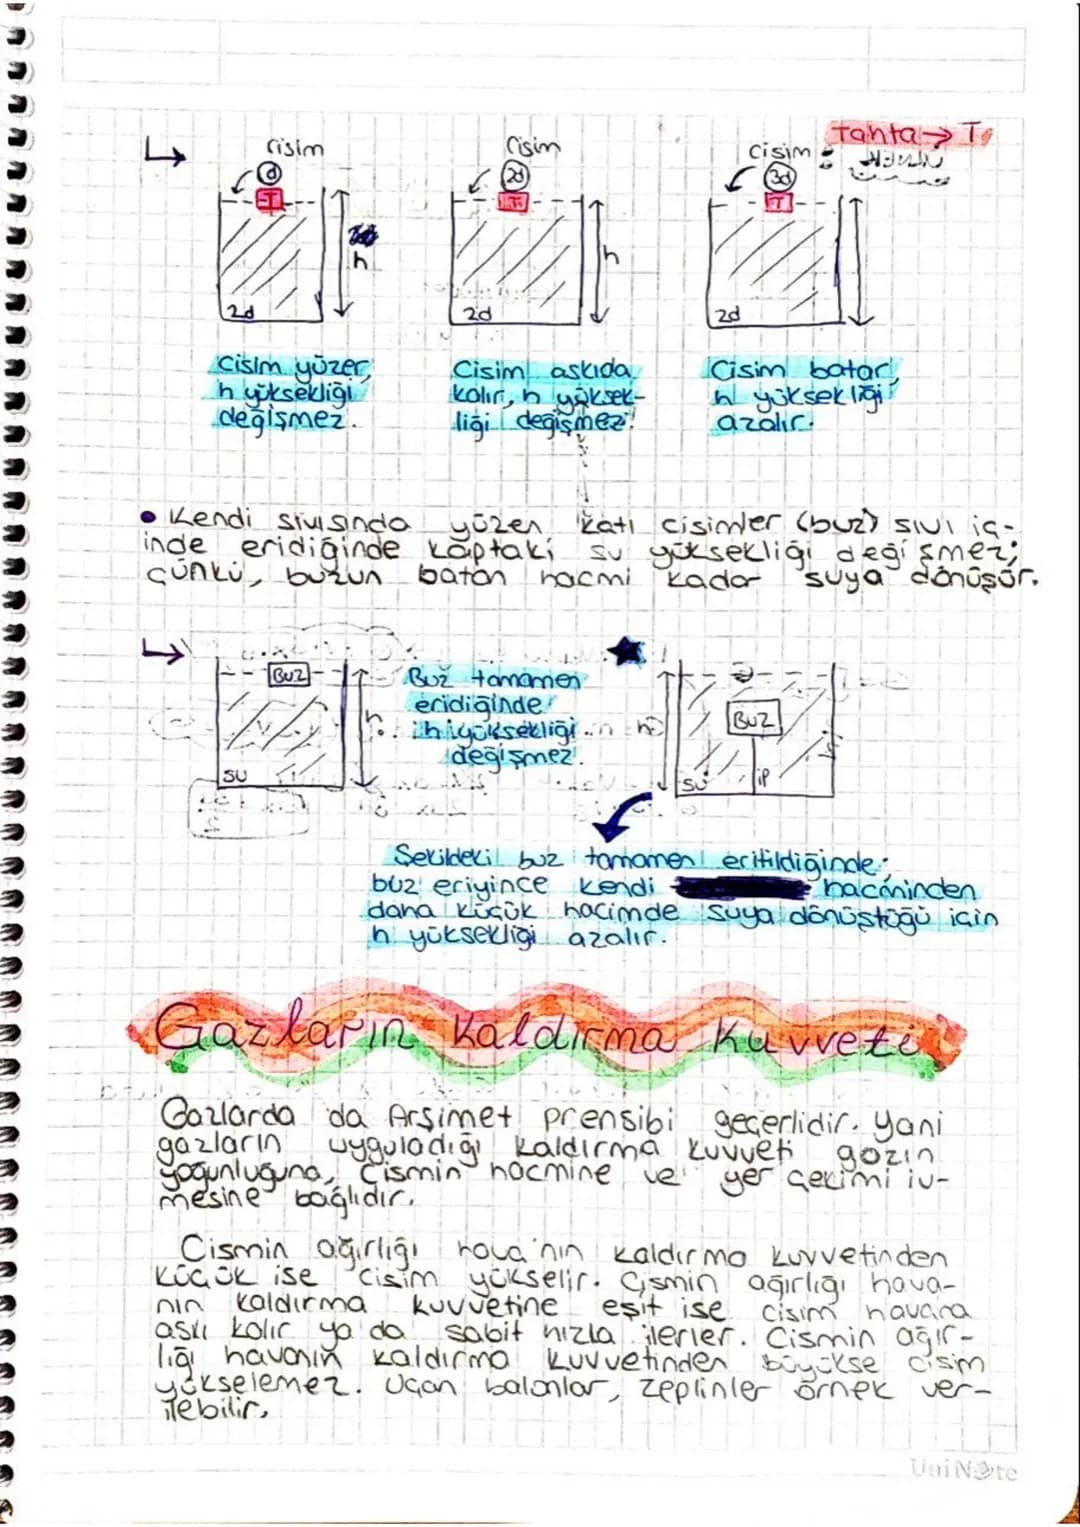 tahta → T
cisim
Cisim
cisim
d
2d
3d
T
T
T
h
h
2d
2d
2d
Cisim yüzer,
h yüksekliği
değişmez.
Cisim askıda
kalır, h yüksek-
liği değişmez.
Cisim batar,
h yüksekliği
azalır.
• Kendi sıvısında yüzen katı cisimler (buz) sıvı iç-
inde eridiğinde kaptaki su yüksekliği değişmez;
çünkü, buzun batan hacmi kadar suya dönüşür.
BUZ
h
su
Buz tamamen
eridiğinde
h yüksekliği
değişmez.
BUZ
h
su
ip
Şekildeki buz tamamen eritildiğinde;
buz eriyince kendi hacminden
daha küçük hacimde suya dönüştüğü için
h yüksekliği azalır.
Gazların Kaldırma Kuvveti
Gazlarda da Arşimet prensibi geçerlidir. Yani
gazların uyguladığı kaldırma kuvveti gazın
yoğunluğuna, cismin hacmine ve yer çekimi iv-
mesine bağlıdır.
Cismin ağırlığı hava'nın kaldırma kuvvetinden
küçük ise cisim yükselir. Cismin ağırlığı hava-
nın kaldırma kuvvetine eşit ise cisim havada
askı kalır ya da sabit hızla ilerler. Cismin ağır-
lığı havanın kaldırma kuvvetinden büyükse cisim
yükselemez. Uçan balonlar, zeplinler örnek ver-
ilebilir.
UniNote